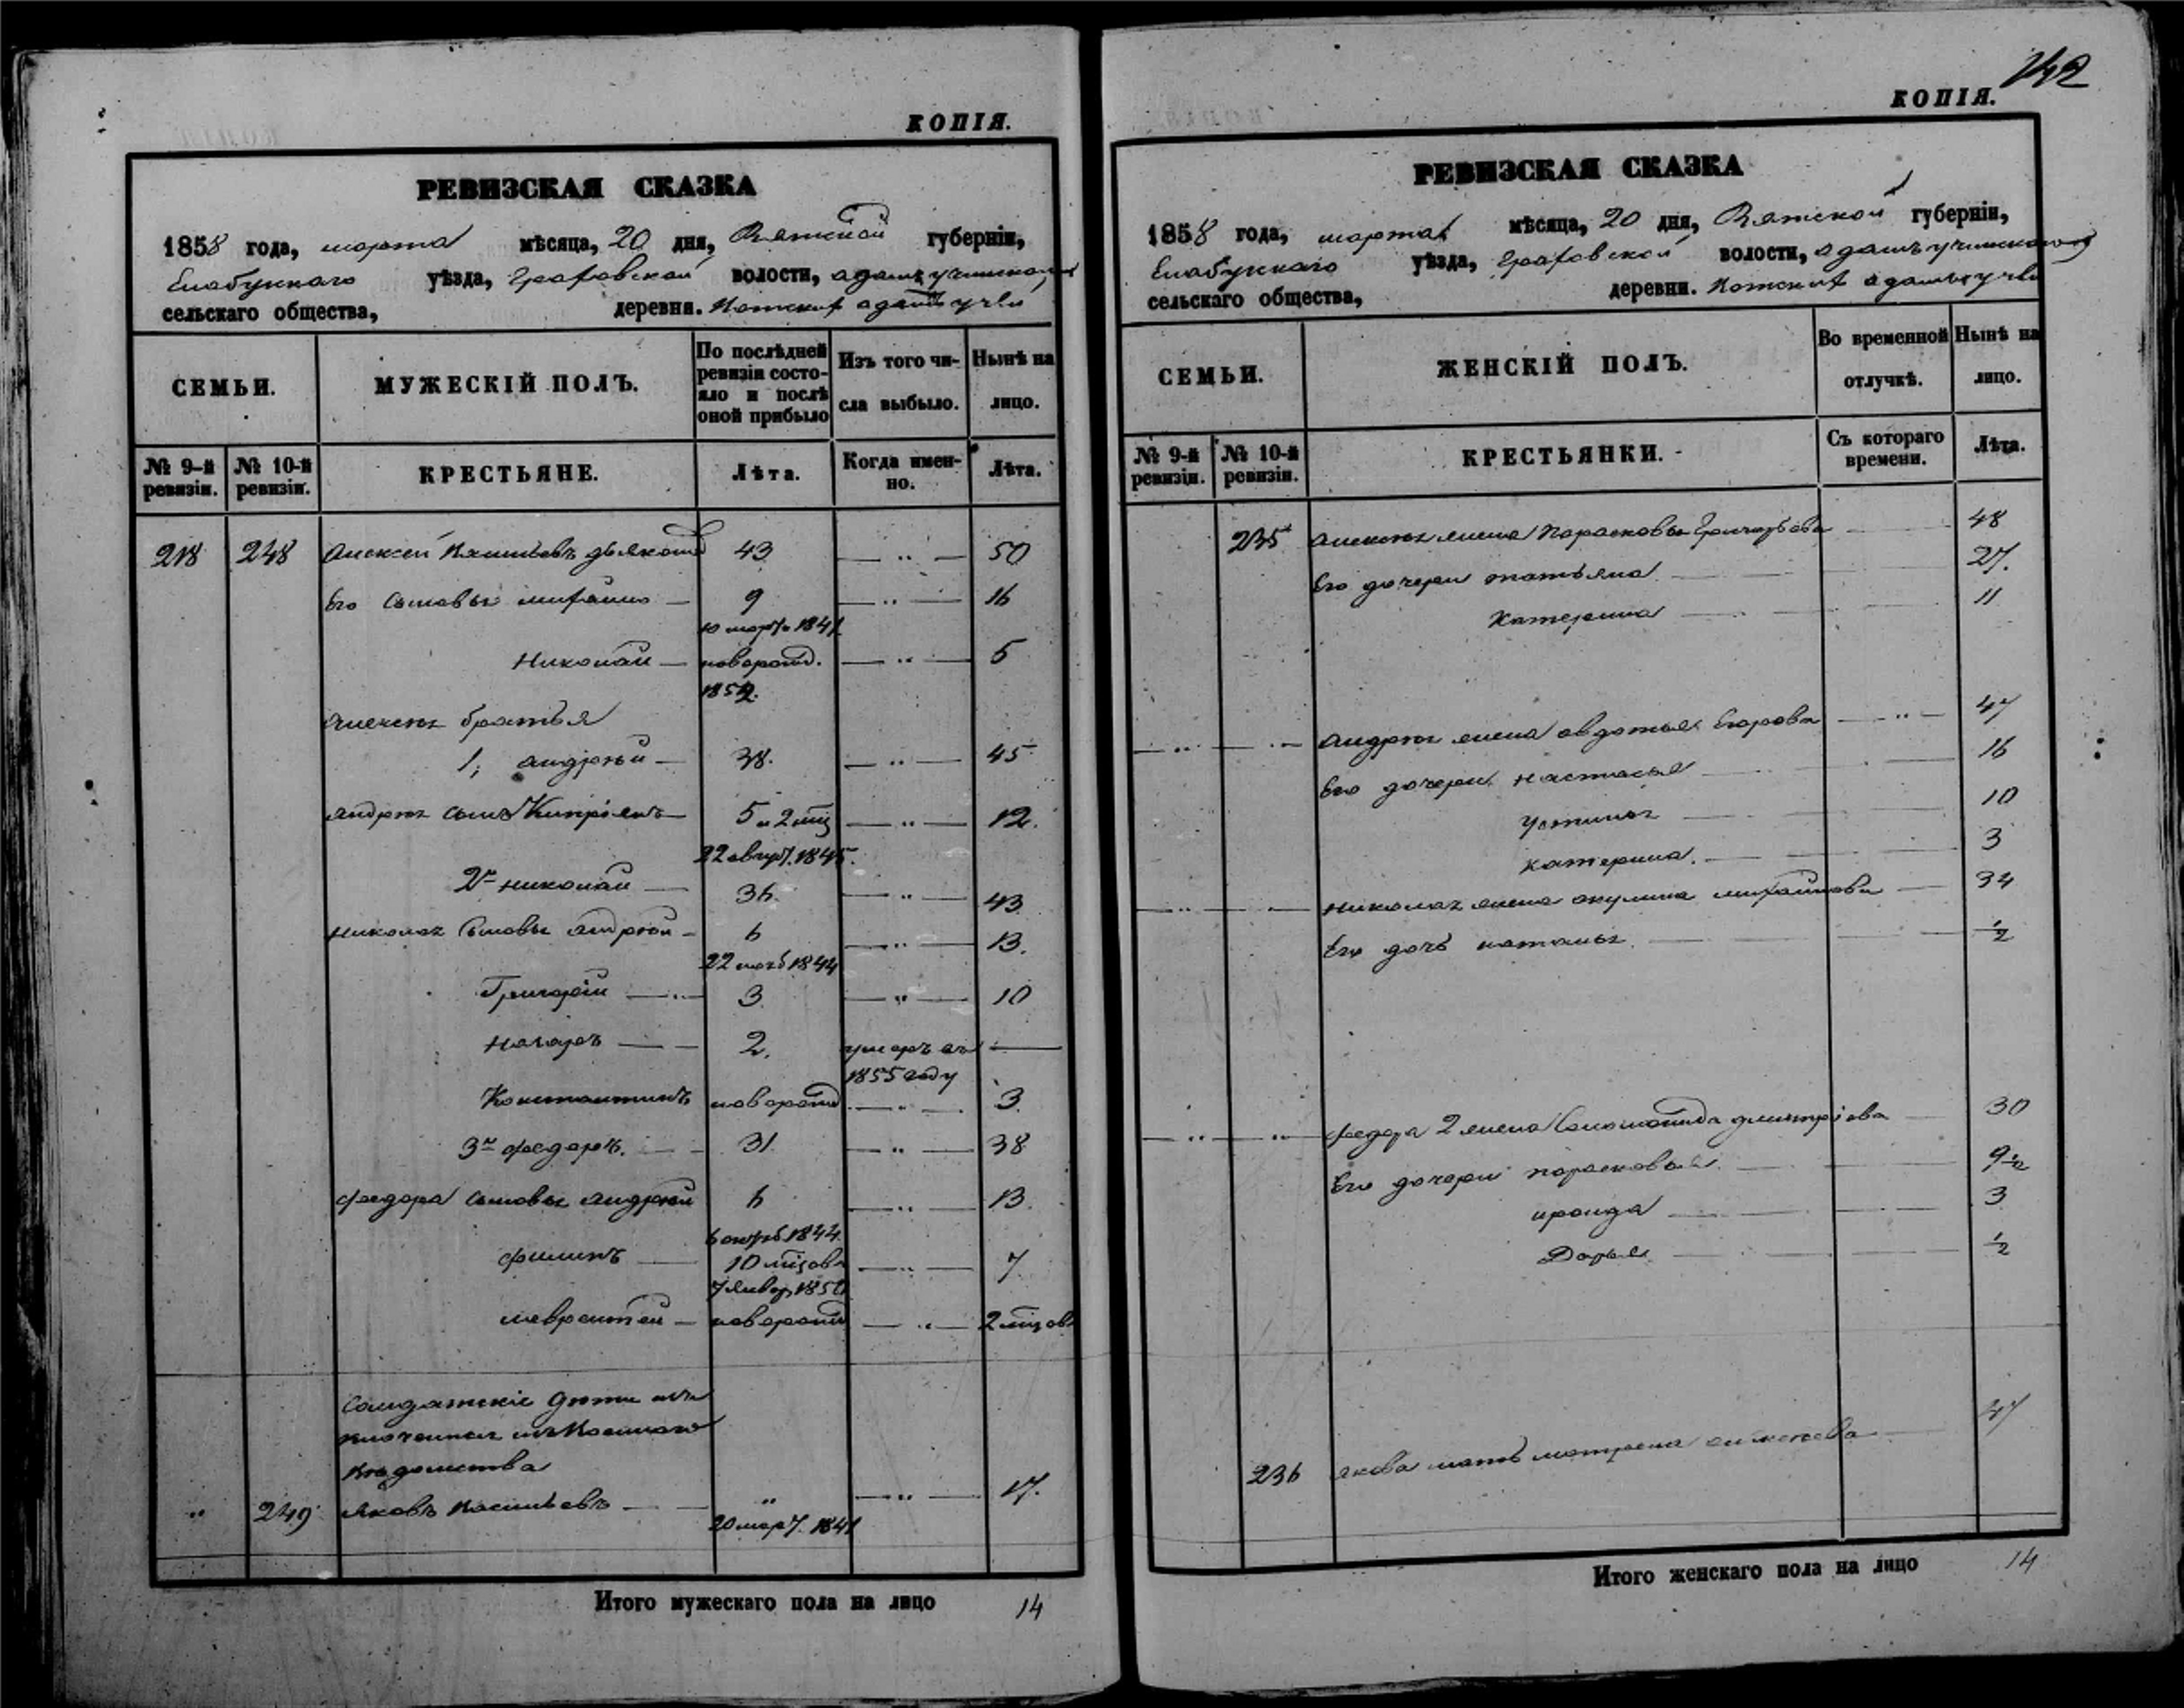 142
КОПІЯ.
РЕВИЗСКАЯ СКАЗКА
1858 года, марта мѣсяца, 20 дня, Вятской губерніи,
Елабужскаго уѣзда, Граховской волости,
сельскаго общества, деревни.
СЕМЬИ. МУЖЕСКІЙ ПОЛЪ. По послѣдней ревизіи состояло и послѣ оной прибыло Изъ того числа выбыло. Нынѣ на лицо.
№ 9-й ревизіи. № 10-й ревизіи. КРЕСТЬЯНЕ. Лѣта. Когда именно. Лѣта.
218 248 Алексей 43 — " — 50
Его сыновья Михаило — 9 — " — 16
10 март. 1841
Николай — новорожд. — " — 5
1852.
братья
1, Андрей — 38. — " — 45
Андрея сынъ Кипріянъ — 5 и 2 — " — 12.
22 август. 1845.
2й Николай — 36. — " — 43
Николая сыновья Андрей — 6 — " — 13.
22 1844
Григорій — 3 — " — 10
Назаръ — 2. умеръ въ —
1855 году
Константинъ новорожд — " — 3.
3й Федоръ. — 31. — " — 38
Федора сыновья Андрей 6 — " — 13.
6 октяб. 1844.
Филипъ — 10 — " — 7
7 январ. 1850
Лаврентей — новорожд — " — 2
Солдатскіе дети
изъ Военнаго
ведомства
" 249 Яковъ Васильевъ — " — " — 17.
20 март. 1841
Итого мужескаго пола на лицо 14
КОПІЯ.
РЕВИЗСКАЯ СКАЗКА
1858 года, марта мѣсяца, 20 дня, Вятской губерніи,
Елабужскаго уѣзда, Граховской волости,
сельскаго общества, деревни.
СЕМЬИ. ЖЕНСКІЙ ПОЛЪ. Во временной отлучкѣ. Нынѣ на лицо.
№ 9-й ревизіи. № 10-й ревизіи. КРЕСТЬЯНКИ. Съ котораго времени. Лѣта.
235 жена Парасковья Григорьева — 48
Его дочери Татьяна — 27.
Катерина — 11
— " — " — Андрея жена Авдотья Егорова — " — 47
Его дочери Настасья — 16
Устинья — 10
Катерина. — 3
— " — " — Николая жена Окулина Михайлова — 34
Его дочь Наталья. — 1/2
— " — " — Федора 2 жена Соломонида Дмитріева — 30
Его дочери Парасковья — 9 1/2
Ироида — 3
Дарья — 1/2
236 Якова мать Матрена — 47
Итого женскаго пола на лицо 14